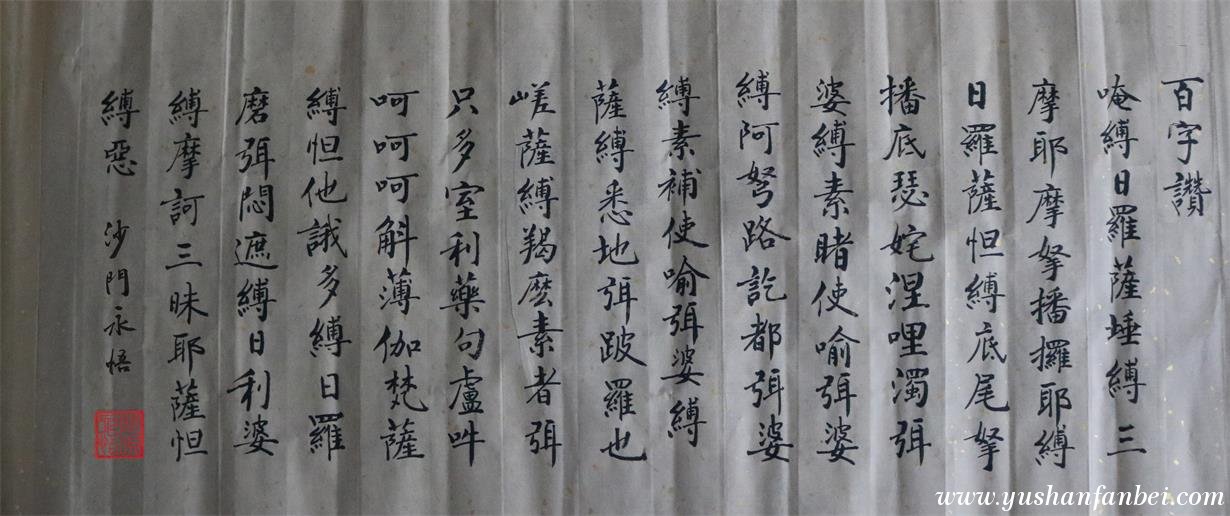 百字讚
唵縛日羅薩埵縛三
摩耶摩拏播攞耶縛
日羅薩怛縛底尾拏
播底瑟姹涅哩濁弭
婆縛素睹使喻弭婆
縛阿弩路訖都弭婆
縛素補使喻弭婆縛
薩縛悉地弭跛羅也
嵯薩縛羯麼素者弭
只多室利藥句盧吽
呵呵呵斛薄伽梵薩
縛怛他誐多縛日羅
磨弭悶遮縛日利婆
縛摩訶三昧耶薩怛
縛惡 沙門永悟
www.yushanfanbei.com